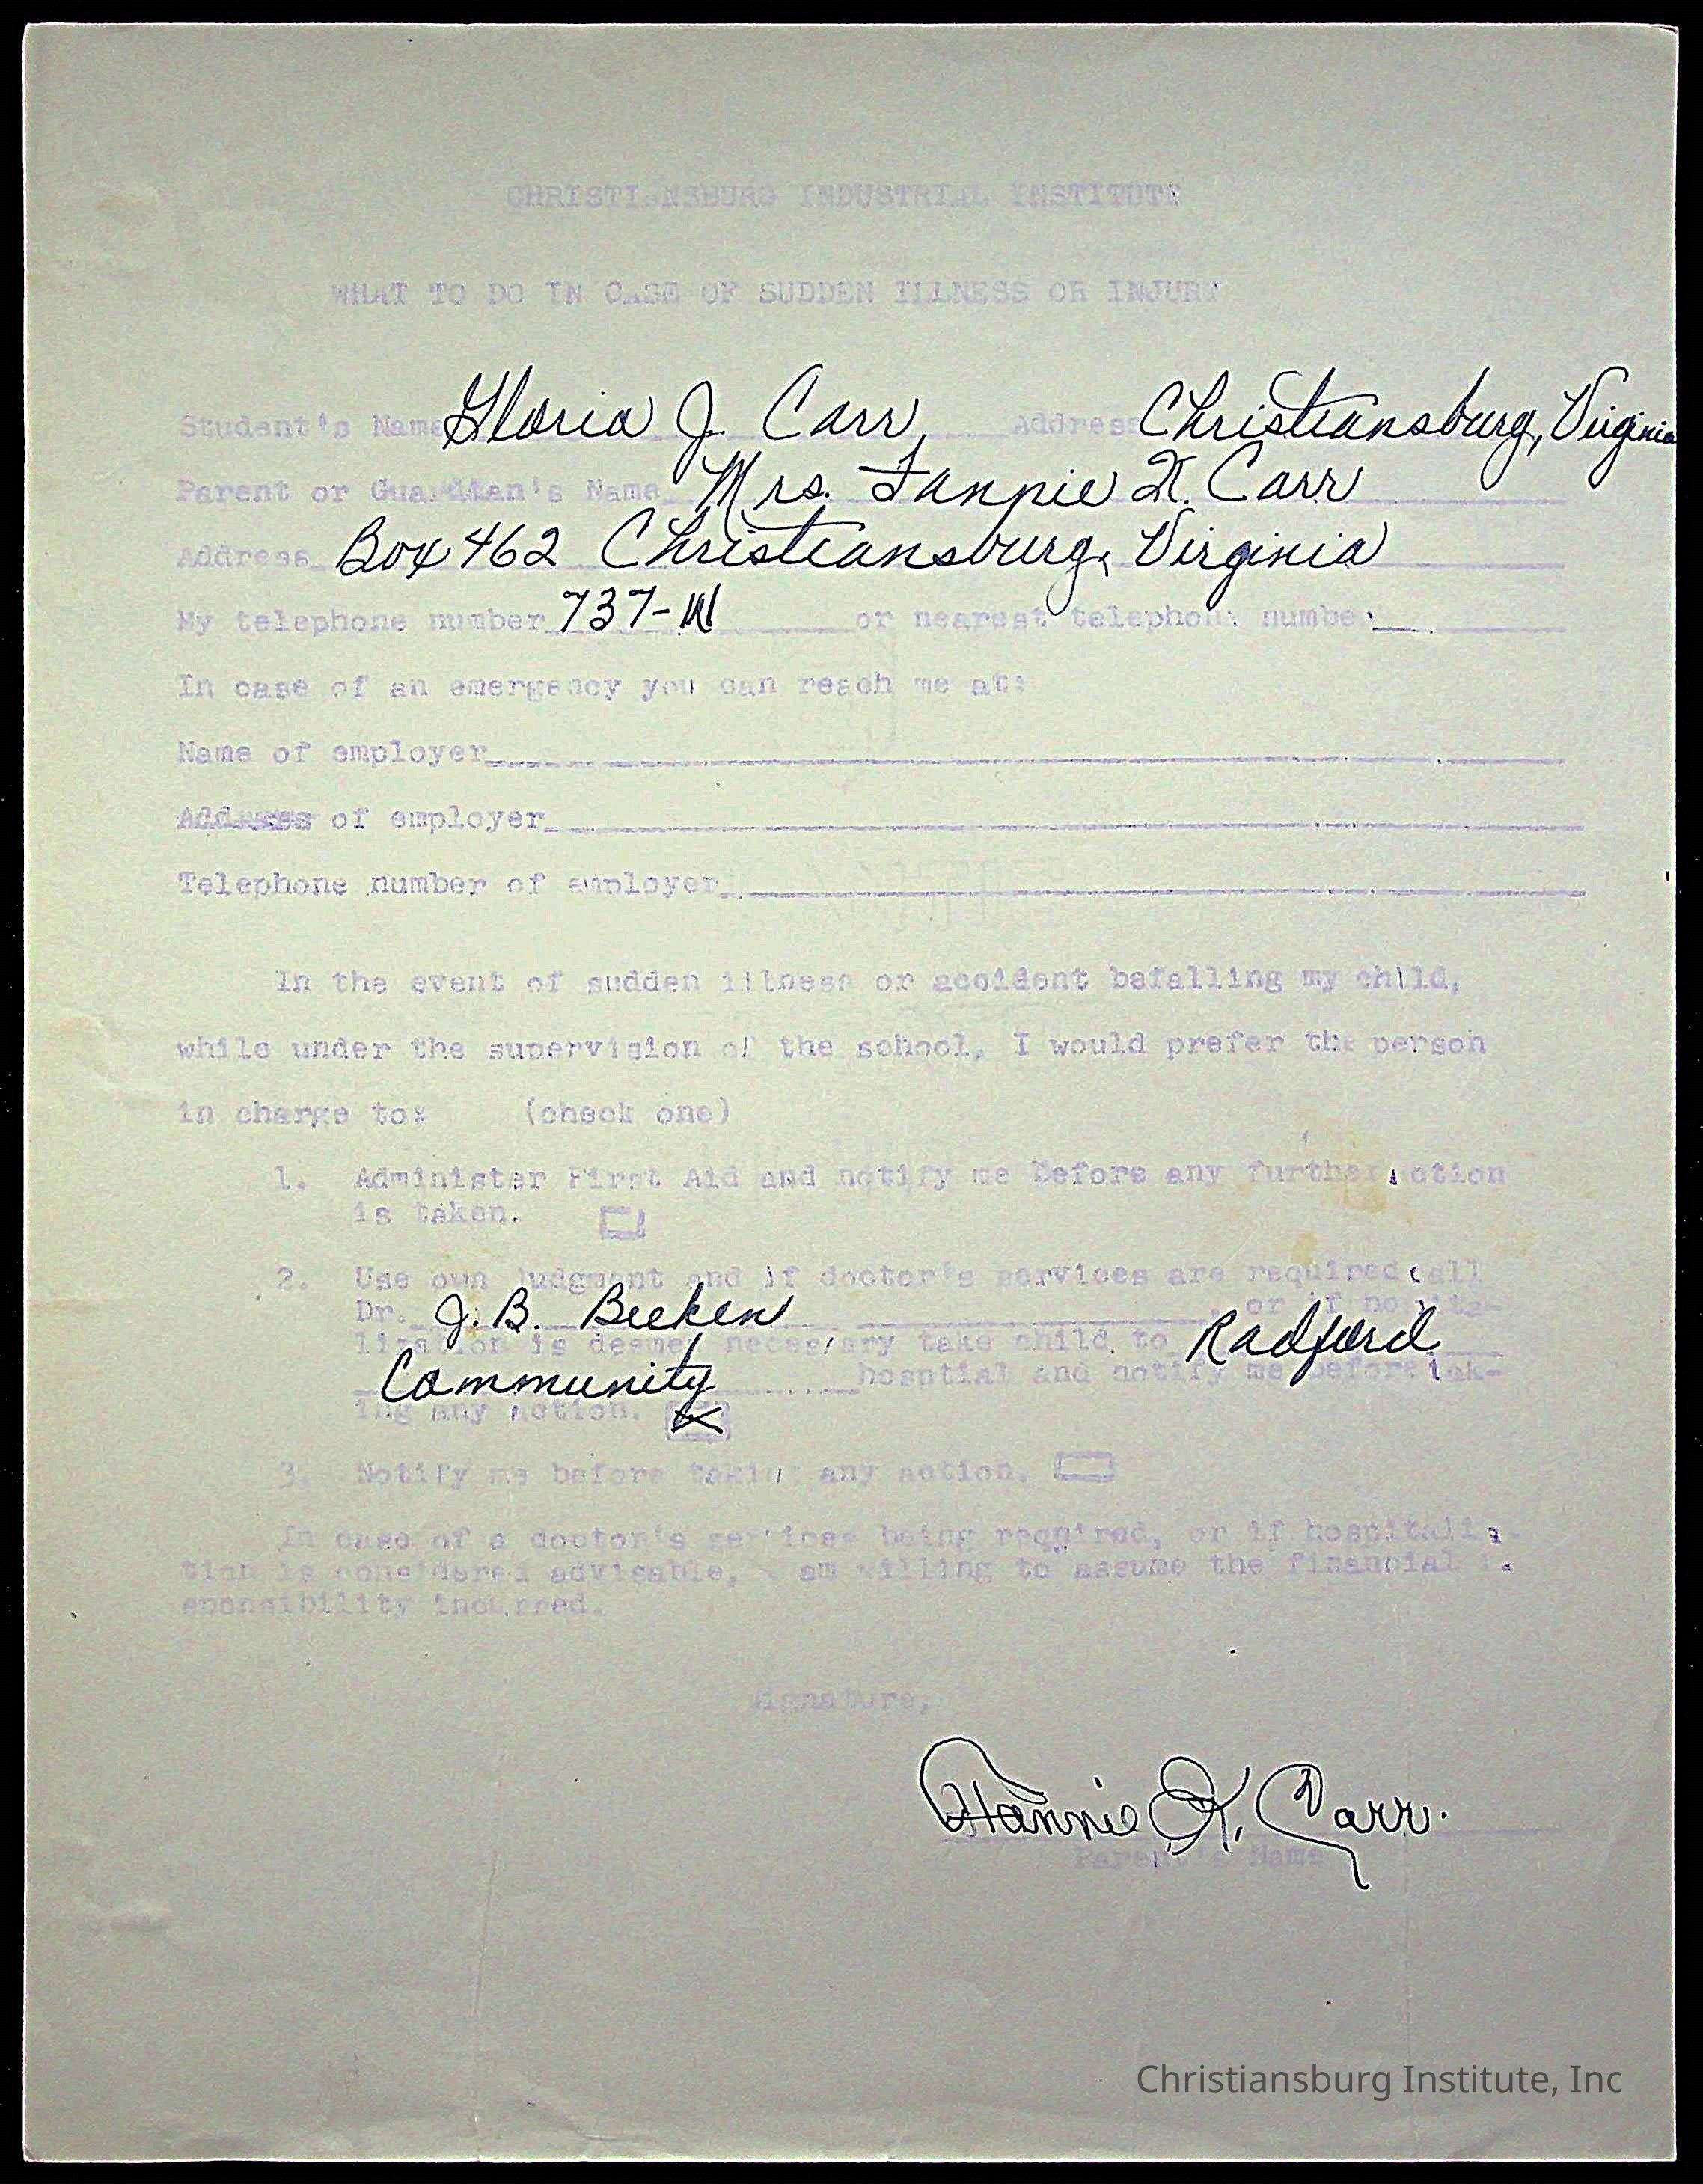 CHRISTIANSBURG INDUSTRIAL INSTITUTE
WHAT TO DO IN CASE OF SUDDEN ILLNESS OR INJURY
Student's Name Gloria J. Carr Address Christiansburg, Virginia
Parent or Guardian's Name Mrs. Fannie K. Carr
Address Box 462 Christiansburg, Virginia
My telephone number 737-W or nearest telephone number
In case of an emergency you can reach me at:
Name of employer
Address of employer
Telephone number of employer
In the event of sudden illness or accident befalling my child,
while under the supervision of the school, I would prefer the person
in charge to: (check one)
1. Administer First Aid and notify me before any further action
is taken.
2. Use own judgment and if doctor's services are required call
Dr. J. B. Beeken, or if hospita-
lization is deemed necessary take child to Radford
Community hospital and notify me before tak-
ing any action. X
3. Notify me before taking any action.
In case of a doctor's services being required, or if hospitaliza-
tion is considered advisable, I am willing to assume the financial re-
sponsibility incurred.
Signature,
Fannie K. Carr.
Parent's Name
Christiansburg Institute, Inc